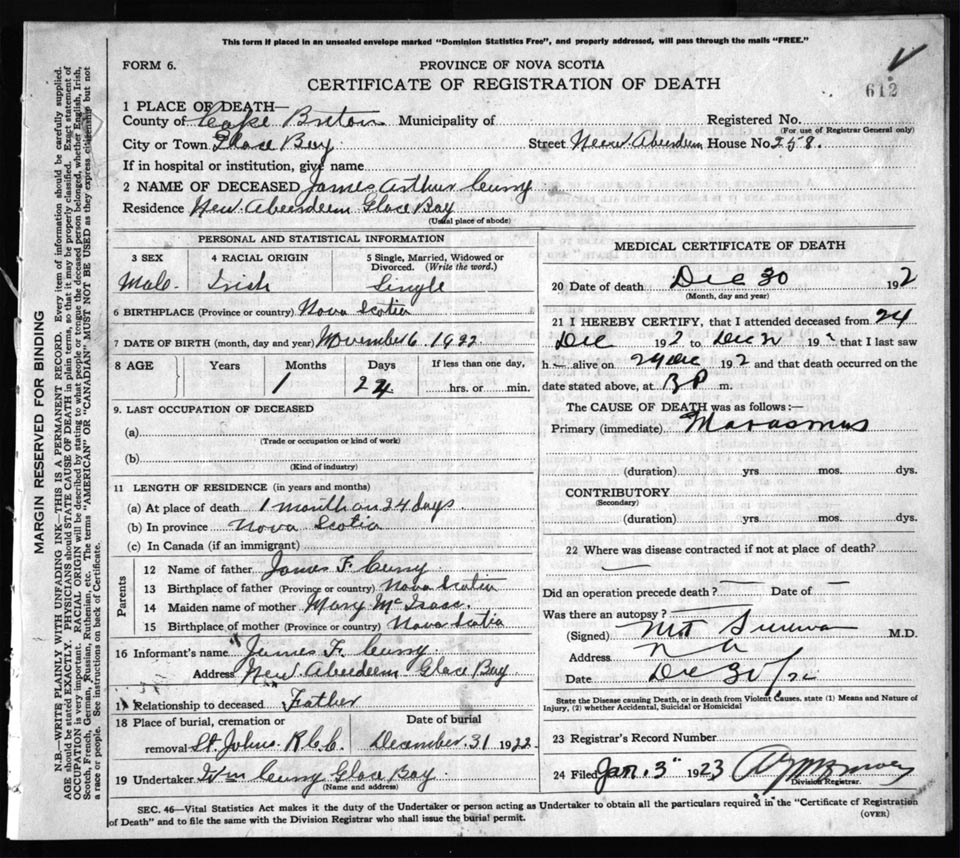 This form if placed in an unsealed envelope marked "Dominion Statistics Free", and properly addressed, will pass through the mails "FREE."
FORM 6.
PROVINCE OF NOVA SCOTIA
CERTIFICATE OF REGISTRATION OF DEATH
612
1 PLACE OF DEATH—
County of Cape Breton Municipality of Registered No.
(For use of Registrar General only)
City or Town Glace Bay Street New Aberdeen House No. 258.
If in hospital or institution, give name
2 NAME OF DECEASED James Arthur Curry
Residence New Aberdeen Glace Bay
(Usual place of abode)
PERSONAL AND STATISTICAL INFORMATION
3 SEX 4 RACIAL ORIGIN 5 Single, Married, Widowed or Divorced. (Write the word.)
Male. Irish Single
6 BIRTHPLACE (Province or country) Nova Scotia
7 DATE OF BIRTH (month, day and year) November 6. 1922.
8 AGE Years Months Days If less than one day,
1 24 hrs. or min.
9. LAST OCCUPATION OF DECEASED
(a)
(Trade or occupation or kind of work)
(b)
(Kind of industry)
11 LENGTH OF RESIDENCE (in years and months)
(a) At place of death 1 month an 24 days
(b) In province Nova Scotia
(c) In Canada (if an immigrant)
Parents
12 Name of father James F. Curry
13 Birthplace of father (Province or country) Nova Scotia
14 Maiden name of mother Mary McIsaac.
15 Birthplace of mother (Province or country) Nova Scotia
16 Informant's name James F. Curry
Address New Aberdeen Glace Bay
17 Relationship to deceased Father
18 Place of burial, cremation or Date of burial
removal St. Johns R.C.C. December 31 1922.
19 Undertaker Wm Curry Glace Bay
(Name and address)
MEDICAL CERTIFICATE OF DEATH
20 Date of death Dec 30 192
(Month, day and year)
21 I HEREBY CERTIFY, that I attended deceased from 24
Dec 192 to Dec 192 that I last saw
h alive on 29 Dec 192 and that death occurred on the
date stated above, at 3 P m.
The CAUSE OF DEATH was as follows:—
Primary (immediate) Marasmus
(duration) yrs. mos. dys.
CONTRIBUTORY
(Secondary)
(duration) yrs. mos. dys.
22 Where was disease contracted if not at place of death?
Did an operation precede death? Date of
Was there an autopsy?
(Signed) M.D.
Address N A
Date Dec 30/22
State the Disease causing Death, or in death from Violent Causes. state (1) Means and Nature of
Injury, (2) whether Accidental, Suicidal or Homicidal
23 Registrar's Record Number
24 Filed Jan. 3" 1923
Division Registrar.
SEC. 46—Vital Statistics Act makes it the duty of the Undertaker or person acting as Undertaker to obtain all the particulars required in the "Certificate of Registration
of Death" and to file the same with the Division Registrar who shall issue the burial permit.
(OVER)
MARGIN RESERVED FOR BINDING
N.B.—WRITE PLAINLY WITH UNFADING INK—THIS IS A PERMANENT RECORD. Every item of information should be carefully supplied.
AGE should be stated EXACTLY. PHYSICIANS should STATE CAUSE OF DEATH in plain terms, so that it may be properly classified. Exact statement of
OCCUPATION is very important. RACIAL ORIGIN will be described by stating to what people or tongue the deceased person belonged, whether English, Irish,
Scotch, French, German, Russian, Ruthenian, etc. The terms "AMERICAN" OR "CANADIAN" MUST NOT BE USED as they express citizenship but not
a race or people. See instructions on back of Certificate.